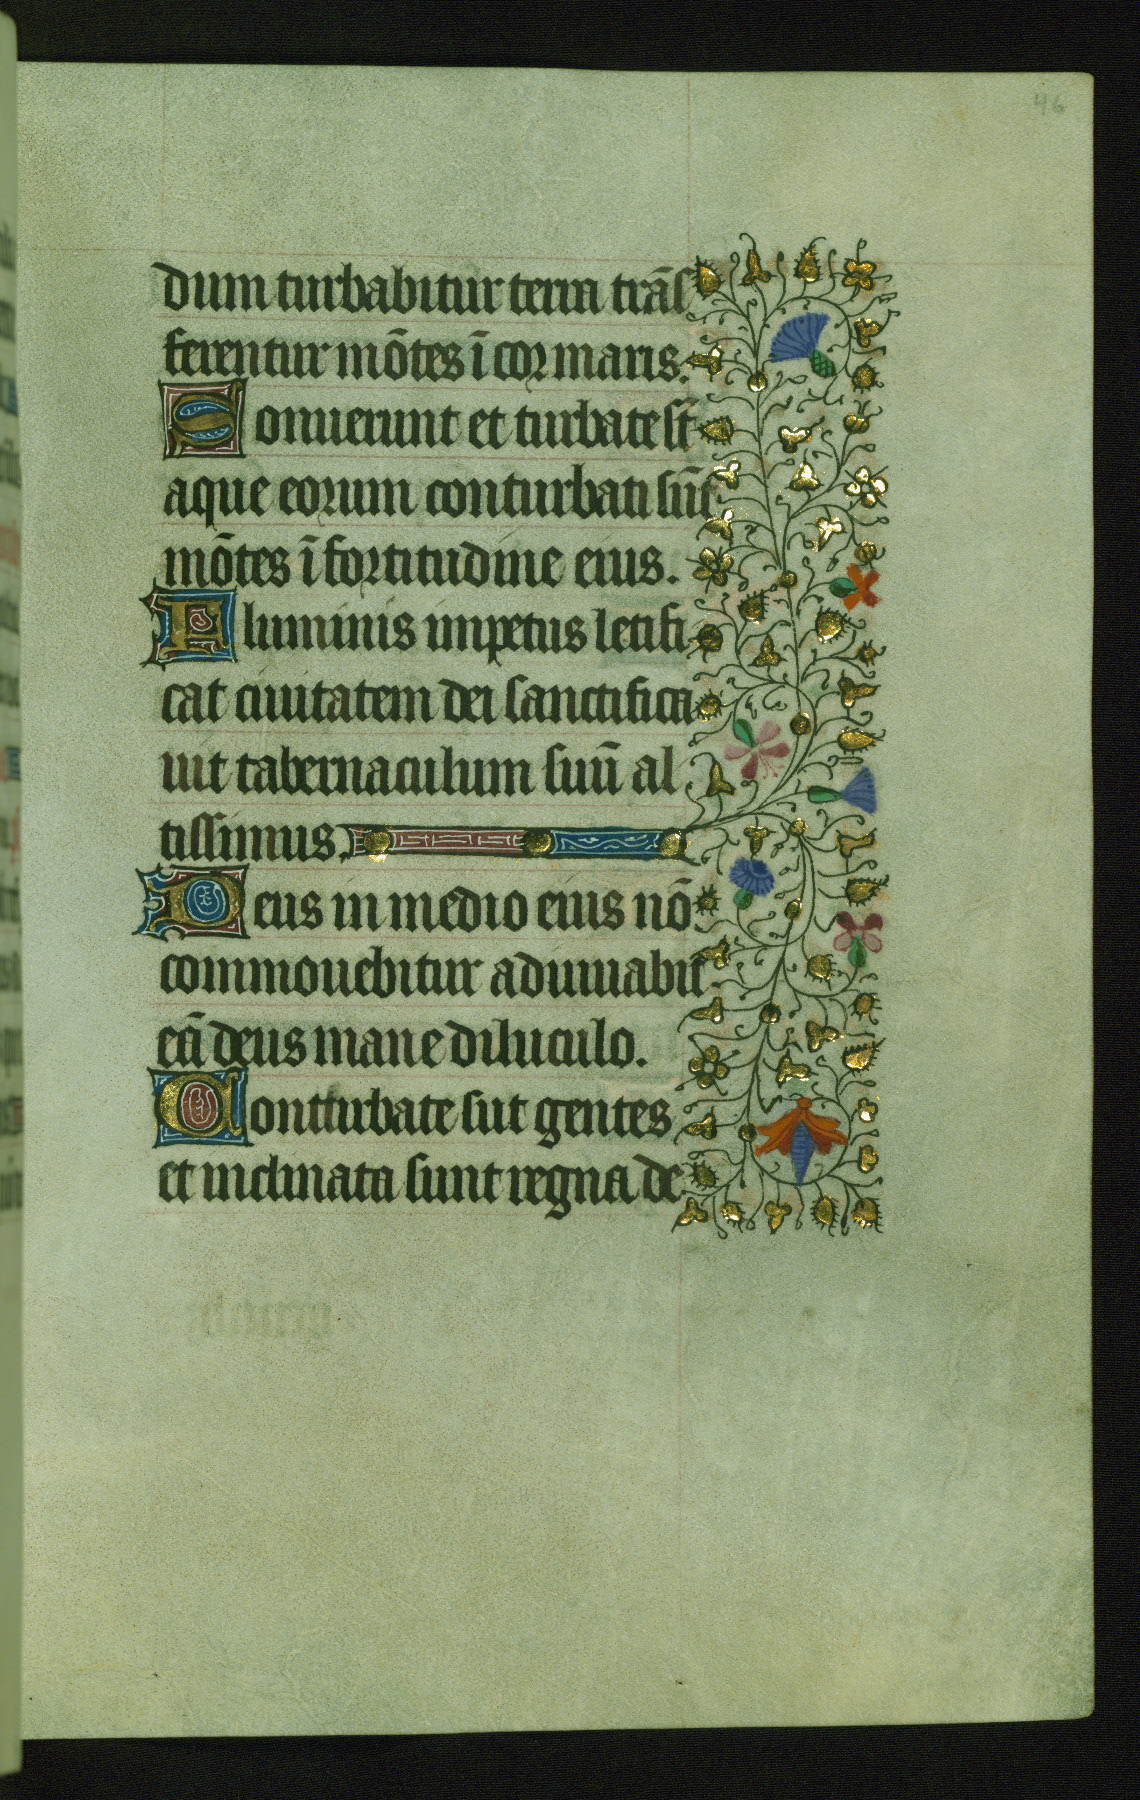 46
dum turbabitur terra trãs
ferentur mõtes ĩ cor maris.
Sonuerunt et turbate st̃
aque eorum conturbati sũt
mõtes ĩ fortitudine eius.
Fluminis impetus letifi
cat ciuitatem dei sanctifica
uit tabernaculum suũ al
tissimus.
Deus in medio eius nõ
commouebitur adiuuabit
eã deus mane diluculo.
Contturbate sut gentes
et inclinata sunt regna de